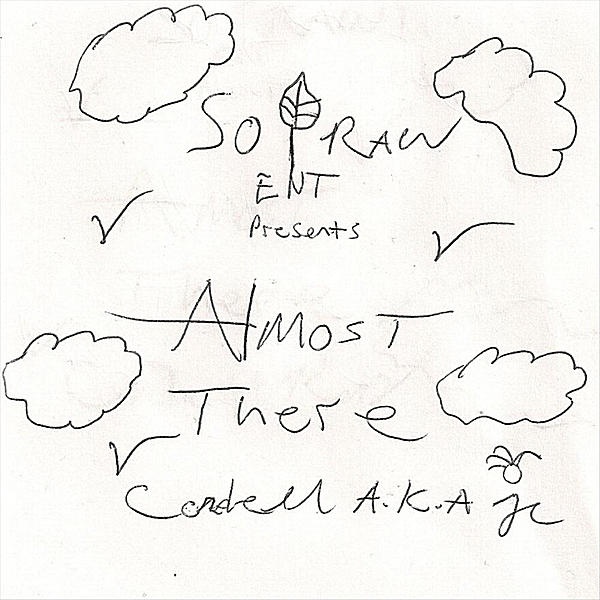 So RAW
ENT
Presents
Almost
There
Condell A.K.A JC